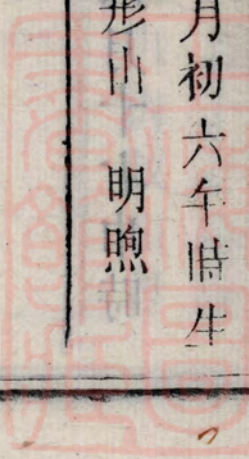 月初六午時生
形山　明煦